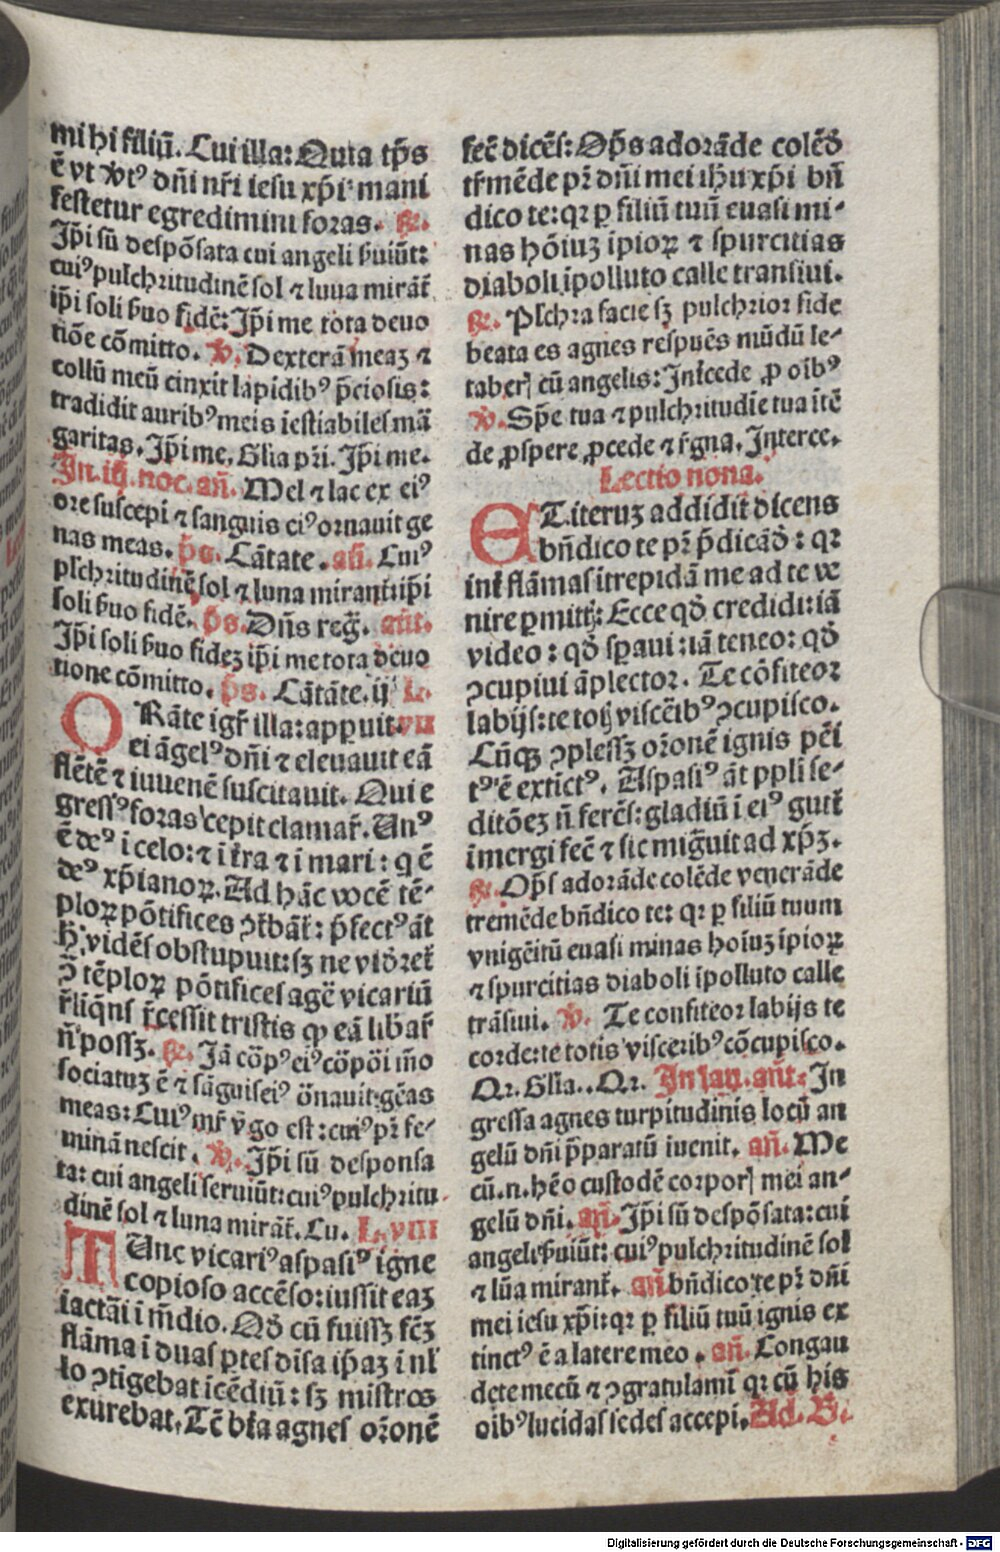 mihi filiū. Cui illa: Quia tp̄s
ē vt v̓t⁹ dn̄i nr̄i iesu xp̄i mani
festetur egredimini foras. ℟.
Ip̄i sū despōsata cui angeli ẜuiūt:
cui⁹ pulchritudinē sol ⁊ luna mirāt̄
ip̄i soli ẜuo fidē: Ip̄i me tota deuo
tiōe cōmitto. ℣. Dexterā meaꝫ ⁊
collū meū cinxit lapidib⁹ p̄ciosis:
tradidit aurib⁹ meis īestiabiles mā
garitas. Ip̄i me. Gl̄ia pr̄i. Ip̄i me.
In. iij. noc. an̄. Mel ⁊ lac ex ei⁹
ore suscepi ⁊ sanguis ei⁹ ornauit ge
nas meas. p̄s. Cātate. an̄. Cui⁹
plc̄hritudinē sol ⁊ luna mirantur ip̄i
soli ẜuo fidē. p̄s. Dn̄s reg̈. an̄t.
Ip̄i soli ẜuo fideꝫ ip̄i me tota deuo
tione cōmitto. p̄s. Cātāte. ij L.
ORāte igr̄ illa: appuit. vii
ei āgel⁹ dn̄i ⁊ eleuauit eā
flētē ⁊ iuuenē suscitauit. Qui e
gress⁹ foras cepit clamar̄. Vn⁹
ē de⁹ i celo: ⁊ i t̄ra ⁊ i mari: q ē
de⁹ xp̄ianoꝝ. Ad hāc vocē tē-
ploꝝ pōtifices ↄt̄bāt̄: p̄fect⁹ āt
h̄ vidēs obstupuit: sꝫ ne vid̓ret̄
ↄ̄ tēploꝝ pōtifices agē vicariū
r̄liqn̄s r̄cessit tristis ꝙ eā lib̄ar̄
n̄ possꝫ. ℟. Iā cōp⁹ ei⁹ cōpōi m̄o
sociatuꝫ ē ⁊ sāguis ei⁹ ōnauit gēas
meas: Cui⁹ mr̄ v̓go est: cui⁹ pr̄ fe-
minā nescit. ℣. Ip̄i sū desponsa
ta: cui angeli seruiūt: cui⁹ pulchritu
dinē sol ⁊ luna mirāt̄. Cu. L. viii
TUnc vicari⁹ aspasi⁹ igne
copioso accēso: iussit eaꝫ
iactāi i m̄dio. Qd̓ cū fuissꝫ fc̄ꝫ
flāma i duas ꝑtes diīsa ip̄aꝫ i nl̄
lo ↄtigebat icēdiū: sꝫ mīstros
exurebat. Tc̄ bt̄a agnes or̄onē
fec̄ dicēs: Op̄s adorāde colēd̓
tr̄mēde pr̄ dn̄i mei ih̄u xp̄i bn̄
dico te: qꝛ ꝑ filiū tuū euasi mi-
nas hōiuꝫ īpioꝝ ⁊ spurcitias
diaboli īpolluto calle transiui.
℟. Plc̄hra facie sꝫ pulchrior fide
beata es agnes respuēs mūdū le-
taberꝭ cū angelis: Int̄cede ꝓ oib⁹
℣. Spē tua ⁊ pulchritudīe tua ītē
de ꝓspere ꝓcede ⁊ r̄gna. Interce.
Lectio nona.
ET iteruꝫ addidit dicens
bn̄dico te pr̄ p̄dicād̓: qꝛ
int̄ flāmas ītrepidā me ad te ve
nire ꝑmittꝭ: Ecce qd̓ credidi: iā
video: qd̓ sꝑaui: iā teneo: qd̓
ↄcupiui āplector. Te cōfiteor
labijs: te totꝭ viscēib⁹ ↄcupisco.
Cūqꝫ ↄplessꝫ or̄onē ignis pēi
t⁹ ē extīct⁹. Aspasi⁹ āt ppl̄i se-
ditōeꝫ n̄ ferēs: gladiū i ei⁹ gutt̄
īmergi fec̄ ⁊ sic mig̈uit ad xp̄ꝫ.
℟. Op̄s adorāde colēde venerāde
tremēde bn̄dico te: qꝛ ꝑ filiū tuum
vnigēitū euasi minas hoīuꝫ īpioꝝ
⁊ spurcitias diaboli īpolluto calle
trāsiui. ℣. Te confiteor labijs te
corde: te totis viscerib⁹ cōcupisco.
Qꝛ. Gl̄ia.. Qꝛ. In lau. an̄t: In
gressa agnes turpitudinis locū an
gelū dn̄i p̄paratū īuenit. an̄. Me
cū. n. hēo custodē corporꝭ mei an-
gelū dn̄i. an̄. Ip̄i sū despōsata: cui
angeli ẜuiūt: cui⁹ pulchritudinē sol
⁊ lūa mirant̄. an̄ bn̄dico te pr̄ dn̄i
mei iesu xp̄i: qꝛ ꝑ filiū tuū ignis ex
tinct⁹ ē a latere meo. an̄. Congau
dete mecū ⁊ ↄgratulamī qꝛ cū his
oib⁹ lucidas sedes accepi. Ad. B.
Digitalisierung gefördert durch die Deutsche Forschungsgemeinschaft - DFG